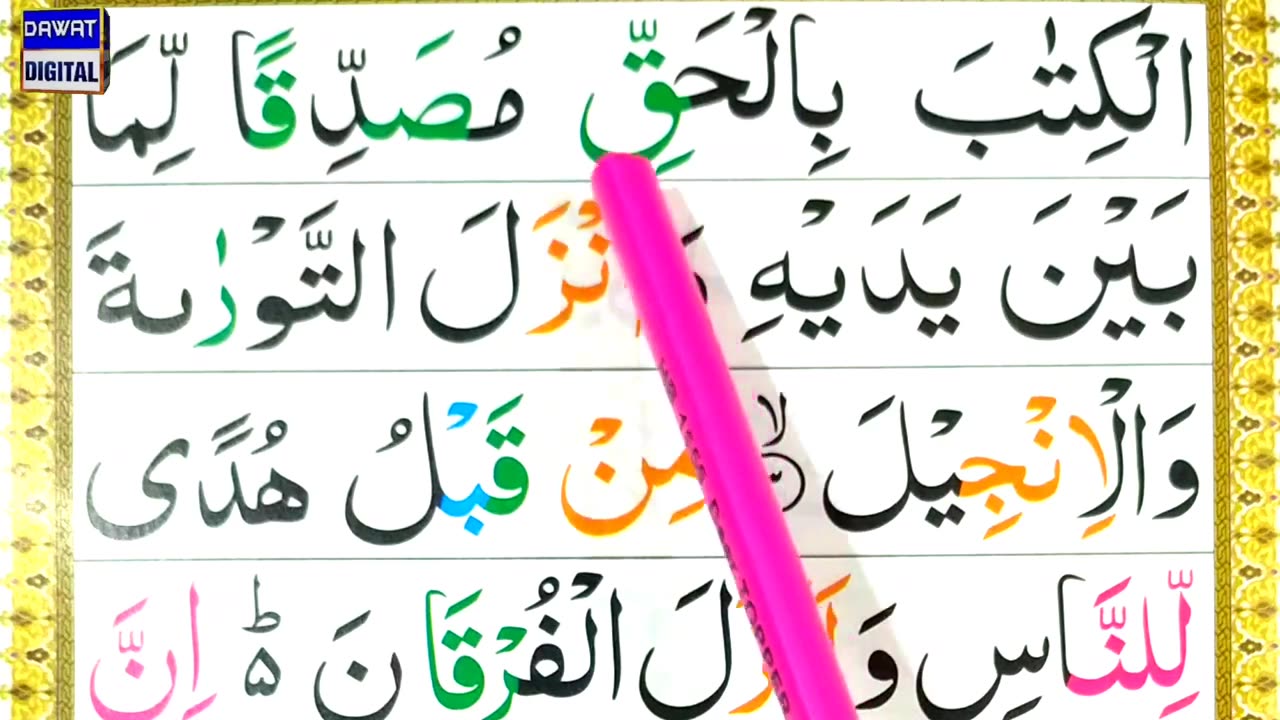 DAWAT
DIGITAL
الْكِتٰبَ بِالْحَقِّ مُصَدِّقًا لِّمَا
بَيْنَ يَدَيْهِ نْزَلَ التَّوْرٰىةَ
وَالْاِنْجِيْلَ ۙ ۳ مِنْ قَبْلُ هُدًى
لِّلنَّاسِ وَ زَلَ الْفُرْقَانَ ؕ ۵ اِنَّ